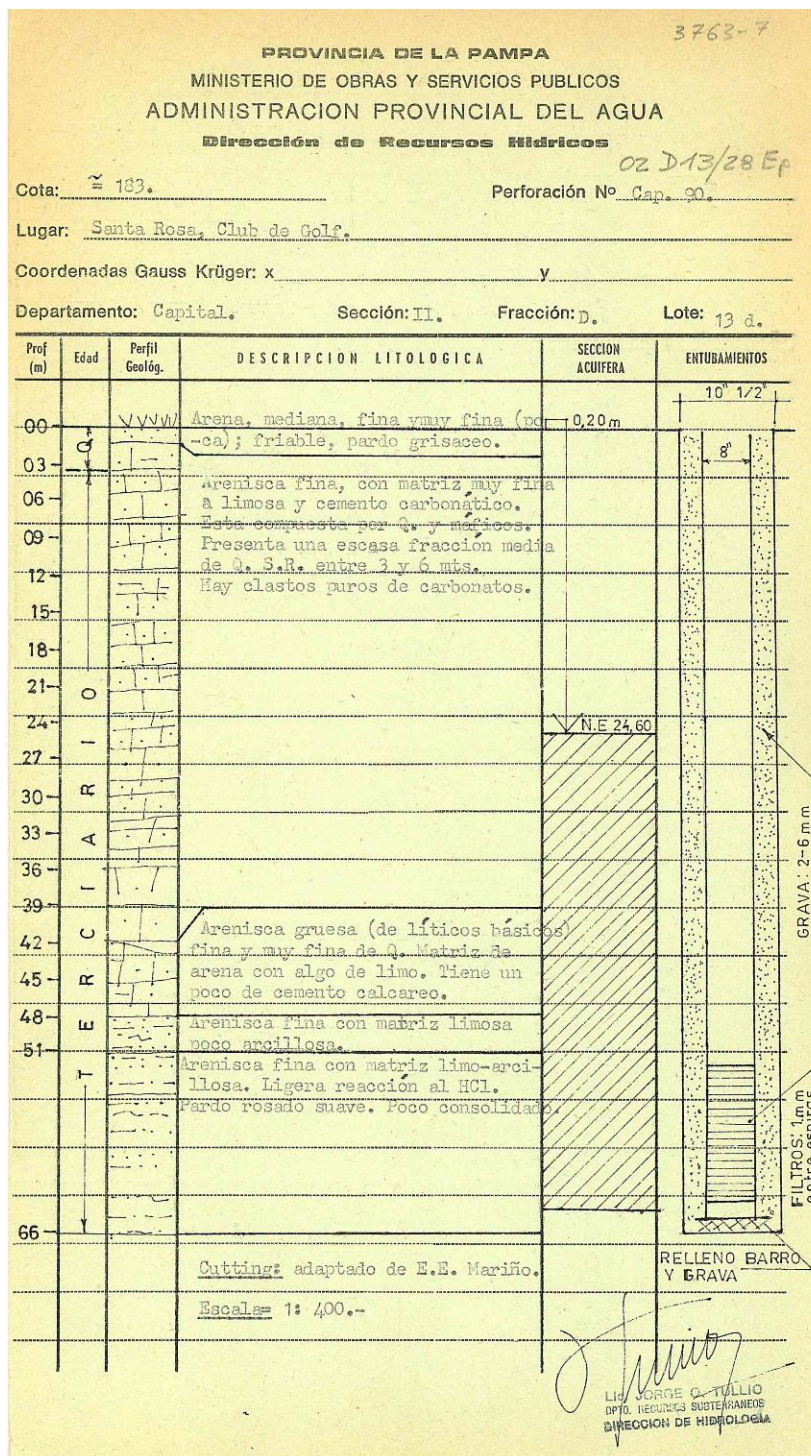 3763-7
PROVINCIA DE LA PAMPA
MINISTERIO DE OBRAS Y SERVICIOS PUBLICOS
ADMINISTRACION PROVINCIAL DEL AGUA
Dirección de Recursos Hídricos
02 D13/28 Ep
Cota: ≅ 183. Perforación Nº Cap. 90.
Lugar: Santa Rosa, Club de Golf.
Coordenadas Gauss Krüger: x y
Departamento: Capital. Sección: II. Fracción: D. Lote: 13 d.
Prof (m) Edad Perfil Geológ. DESCRIPCION LITOLOGICA SECCION ACUIFERA ENTUBAMIENTOS
10" 1/2"
00 Arena, mediana, fina ymuy fina (po 0,20m
Q -ca); friable, pardo grisaceo.
8"
03
Arenisca fina, con matriz muy fina
06 a limosa y cemento carbonático.
Esta compuesta por Q. y máficos.
09 Presenta una escasa fracción media
de Q. S.R. entre 3 y 6 mts.
12 Hay clastos puros de carbonatos.
15
18
21
24 N.E 24,60
27
30
33
36
39
TERCIARIO
GRAVA: 2-6mm
Arenisca gruesa (de líticos básicos)
42 fina y muy fina de Q. Matriz de
arena con algo de limo. Tiene un
45 poco de cemento calcareo.
48 Arenisca fina con matriz limosa
poco arcillosa.
51 Arenisca fina con matriz limo-arci-
llosa. Ligera reacción al HCl.
Pardo rosado suave. Poco consolidado.
FILTROS: 1mm
entre espiras
66
RELLENO BARRO
Y GRAVA
Cutting: adaptado de E.E. Mariño.
Escala= 1: 400.-
Lic. JORGE O. TULLIO
DPTO. RECURSOS SUBTERRANEOS
DIRECCION DE HIDROLOGIA